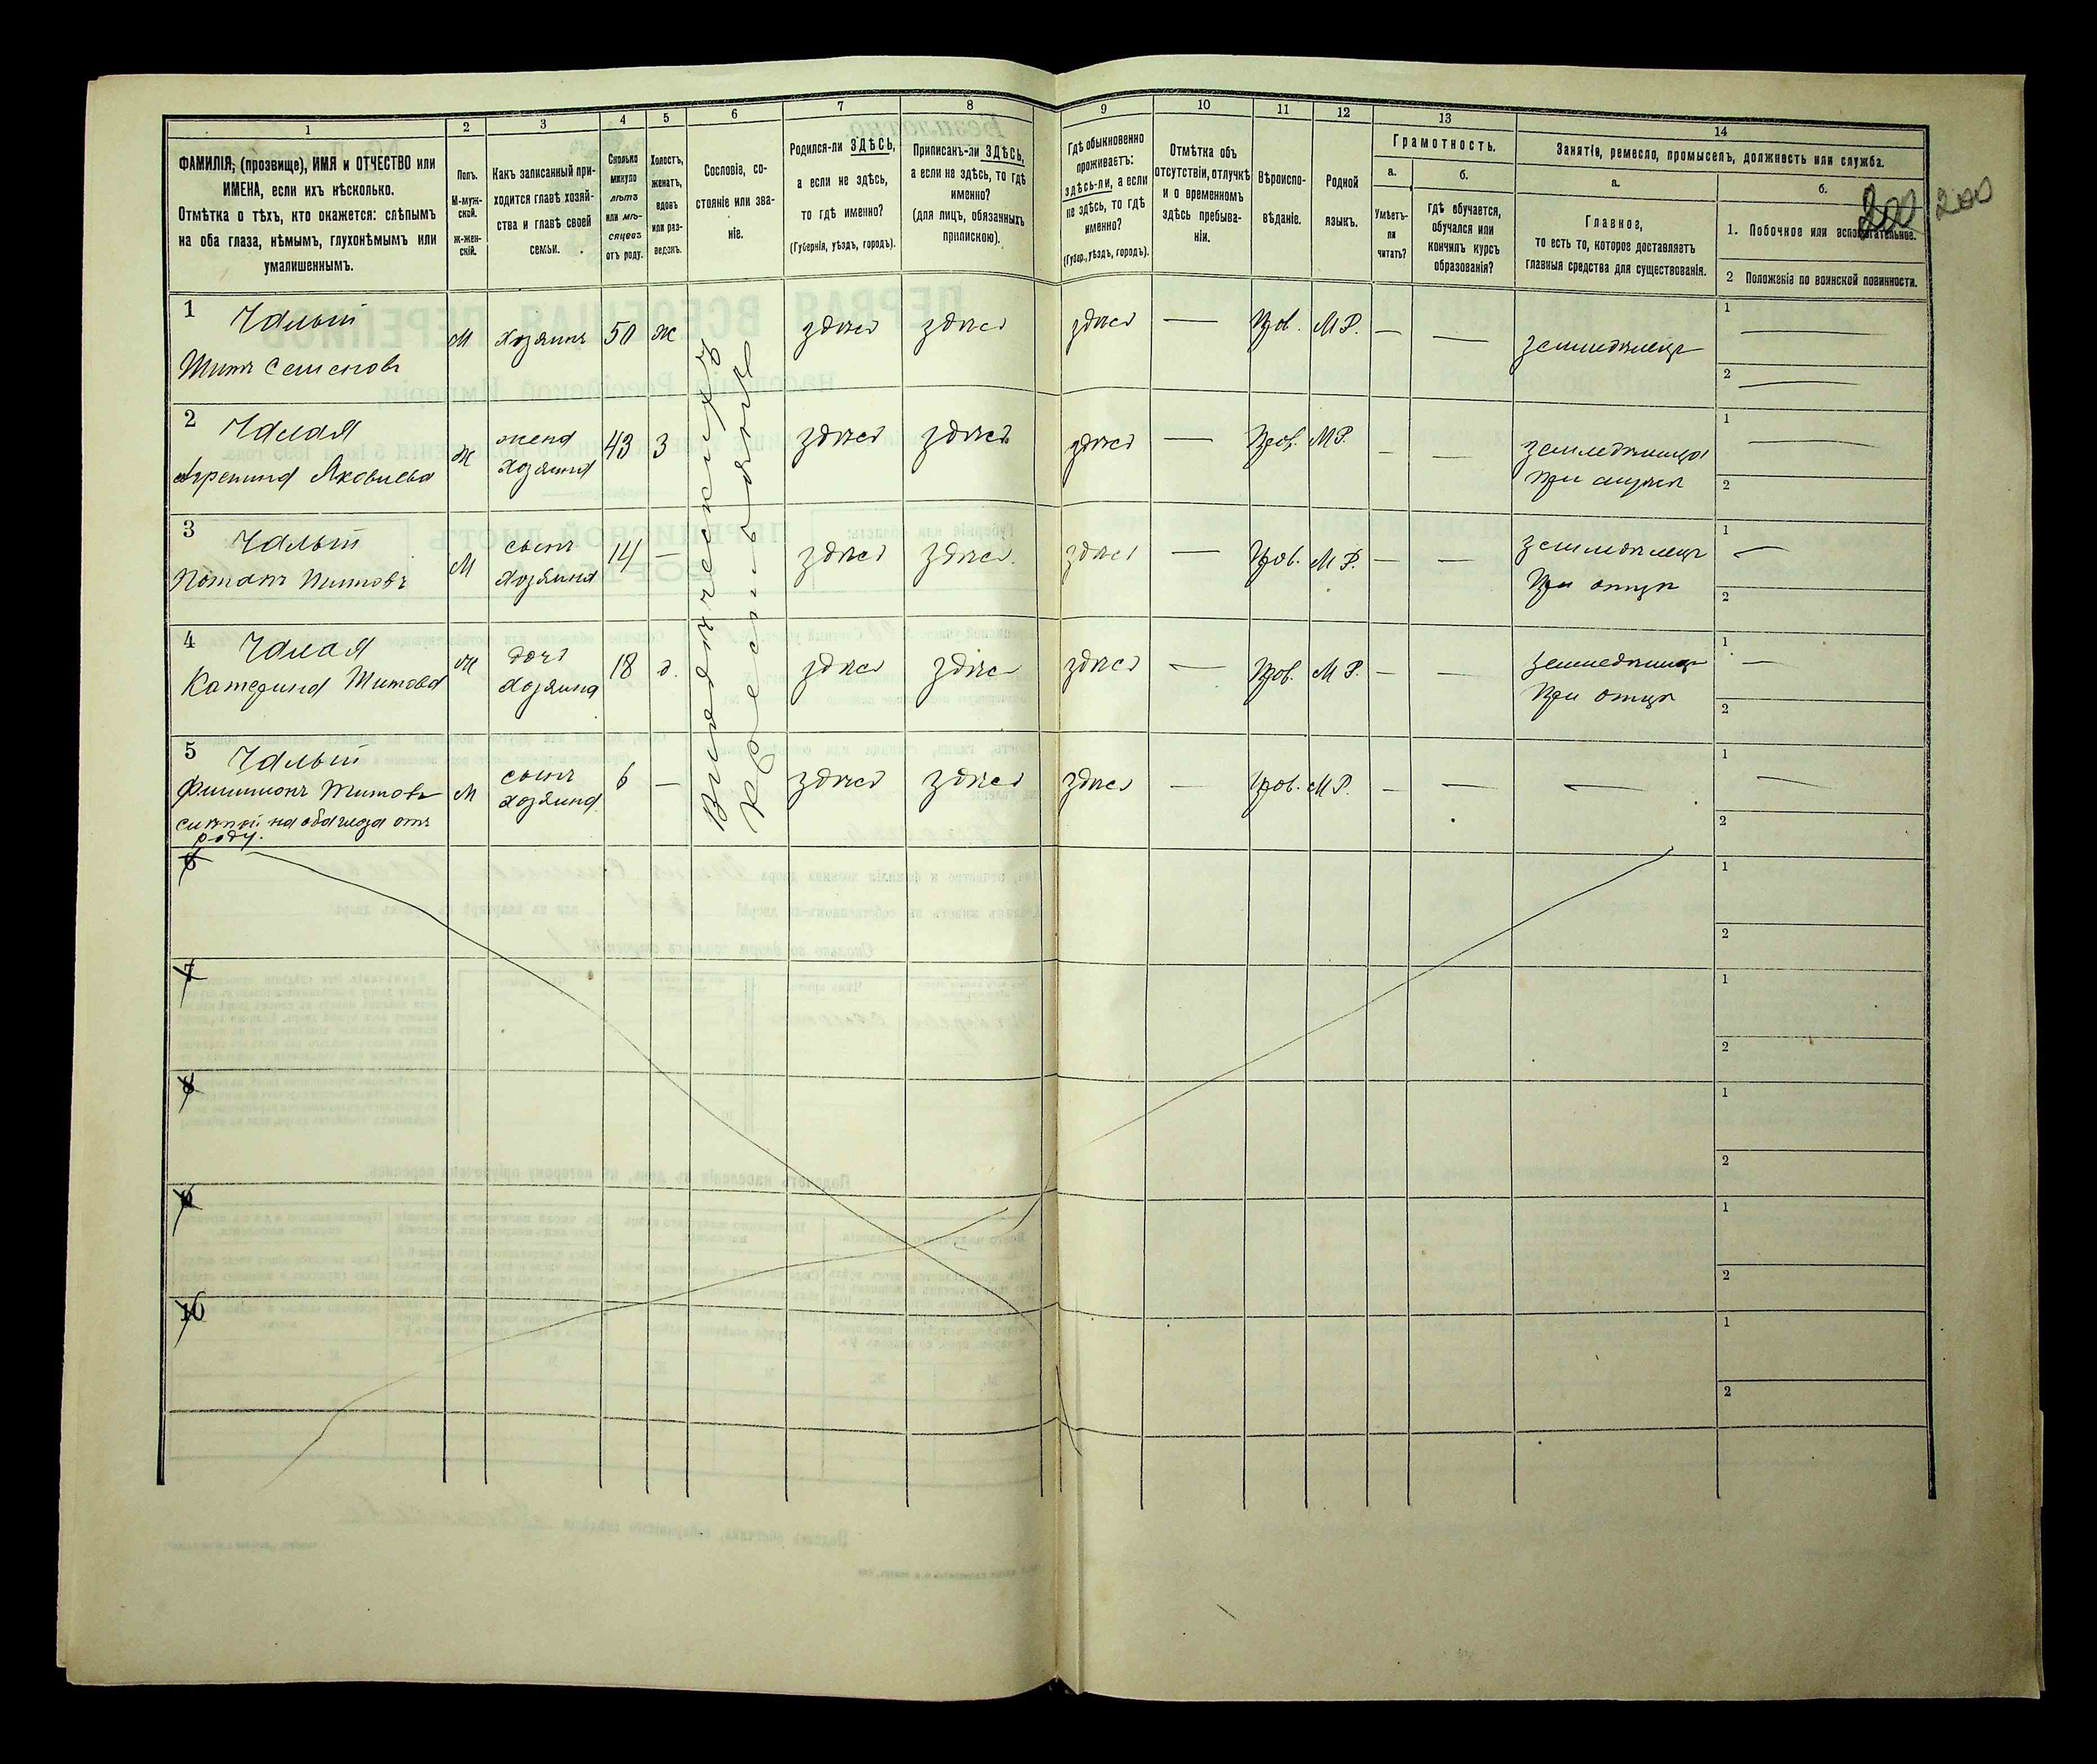 1
2
3
4
5
6
7
8
9
10
11
12
13
14
ФАМИЛІЯ, (прозвище), ИМЯ и ОТЧЕСТВО или
ИМЕНА, если ихъ нѣсколько.
Отмѣтка о тѣхъ, кто окажется: слѣпымъ
на оба глаза, нѣмымъ, глухонѣмымъ или
умалишеннымъ.
Полъ.
М-муж-
ской.
ж-жен-
скій.
Какъ записанный при-
ходится главѣ хозяй-
ства и главѣ своей
семьи.
Сколько
минуло
лѣтъ
или мѣ-
сяцевъ
отъ роду.
Холостъ,
женатъ,
вдовъ
или раз-
веденъ.
Сословіе, со-
стояніе или зва-
ніе.
Родился-ли ЗДѢСЬ,
а если не здѣсь,
то гдѣ именно?
(Губернія, уѣздъ, городъ).
Приписанъ-ли ЗДѢСЬ,
а если не здѣсь, то гдѣ
именно?
(для лицъ, обязанныхъ
припискою).
Гдѣ обыкновенно
проживаетъ:
здѣсь-ли, а если
не здѣсь, то гдѣ
именно?
(Губер., уѣздъ, городъ).
Отмѣтка объ
отсутствіи, отлучкѣ
и о временномъ
здѣсь пребыва-
ніи.
Вѣроиспо-
вѣданіе.
Родной
языкъ.
Грамотность.
а.
Умѣетъ-
ли
читать?
б.
Гдѣ обучается,
обучался или
кончилъ курсъ
образованія?
Занятіе, ремесло, промыселъ, должность или служба.
а.
Главное,
то есть то, которое доставляетъ
главныя средства для существованія.
б.
1. Побочное или вспомогательное.
2 Положеніе по воинской повинности.
200 200
1 Чалый
Титъ Семеновъ
М хозяинъ 50 ж здѣсь здѣсь здѣсь — Прав. М Р. — — земледѣлецъ
1 —
2 —
2 Чалая
Агрепина Яковлева
Ж жена
хозяина
43 З здѣсь здѣсь здѣсь — Прав. М Р. — — земледѣлица
при мужѣ
1 —
2
3 Чалый
Потапъ Титовъ
М сынъ
хозяина
14 — здѣсь здѣсь здѣсь — Прав. М Р. — — земледѣлецъ
При отцѣ
1 —
2
4 Чалая
Катерина Титова
Ж дочь
хозяина
18 д. здѣсь здѣсь здѣсь — Прав. М Р. — —
При отцѣ
1 —
2
5 Чалый
Филимонъ Титовъ
слѣпой на оба глаза отъ
роду.
М сынъ
хозяина
6 — здѣсь здѣсь здѣсь — Прав. М Р. — — —
1 —
2
Владѣльческихъ
Крестьянъ
6
1
2
7
1
2
8
1
2
9
1
2
10
1
2